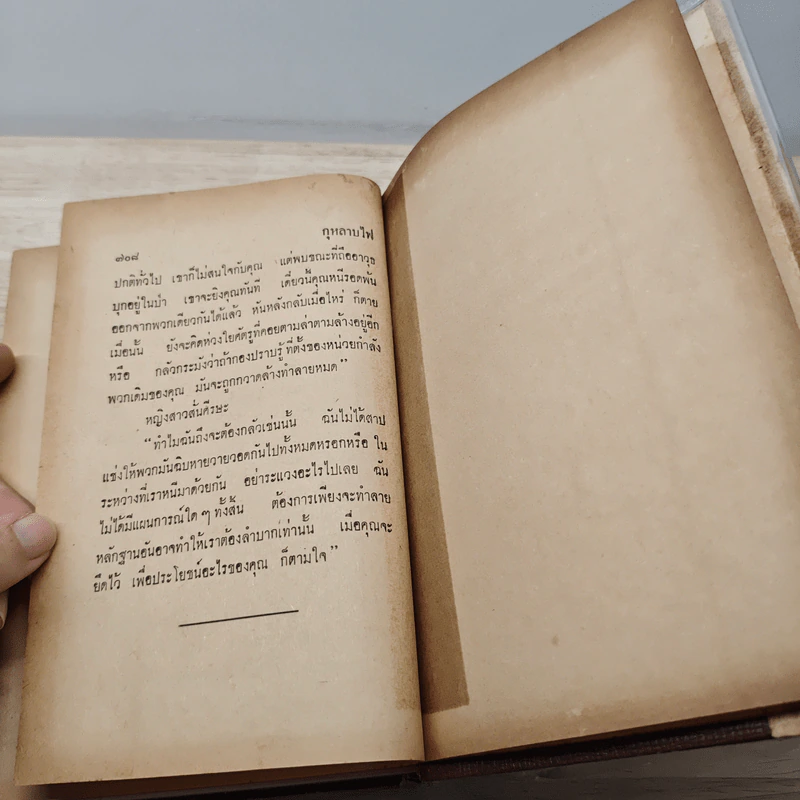 กุหลาบไฟ
๗๐๘
ปกติทั่วไป เขาก็ไม่สนใจกับคุณ แต่พบขณะที่ถืออาวุธ
บุกอยู่ในป่า เขาจะยิงคุณทันที เดี๋ยวนี้คุณหนีรอดพ้น
ออกจากพวกเดียวกันได้แล้ว หันหลังกลับเมื่อไหร่ ก็ตาย
เมื่อนั้น ยังจะคิดห่วงใยศัตรูที่คอยตามล่าตามล้างอยู่อีก
หรือ กลัวกระมังว่าถ้ากองปราบรู้ ที่ตั้งของหน่วยกำลัง
พวกเดิมของคุณ มันจะถูกกวาดล้างทำลายหมด”
หญิงสาวสั่นศีรษะ
“ทำไมฉันถึงจะต้องกลัวเช่นนั้น ฉันไม่ได้สาป
แช่งให้พวกมันฉิบหายวายวอดกันไปทั้งหมดหรอกหรือ ใน
ระหว่างที่เราหนีมาด้วยกัน อย่าระแวงอะไรไปเลย ฉัน
ไม่ได้มีแผนการณ์ใด ๆ ทั้งสิ้น ต้องการเพียงจะทำลาย
หลักฐานอันอาจทำให้เราต้องลำบากเท่านั้น เมื่อคุณจะ
ยึดไว้ เพื่อประโยชน์อะไรของคุณ ก็ตามใจ”